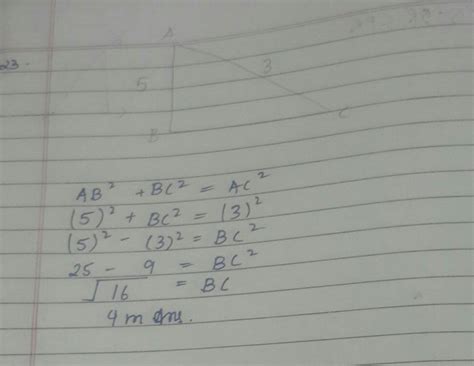 A
23.
3
5
C
B
AB² + BC² = AC²
(5)² + BC² = (3)²
(5)² - (3)² = BC²
25 - 9 = BC²
√16 = BC
4 m Ans.